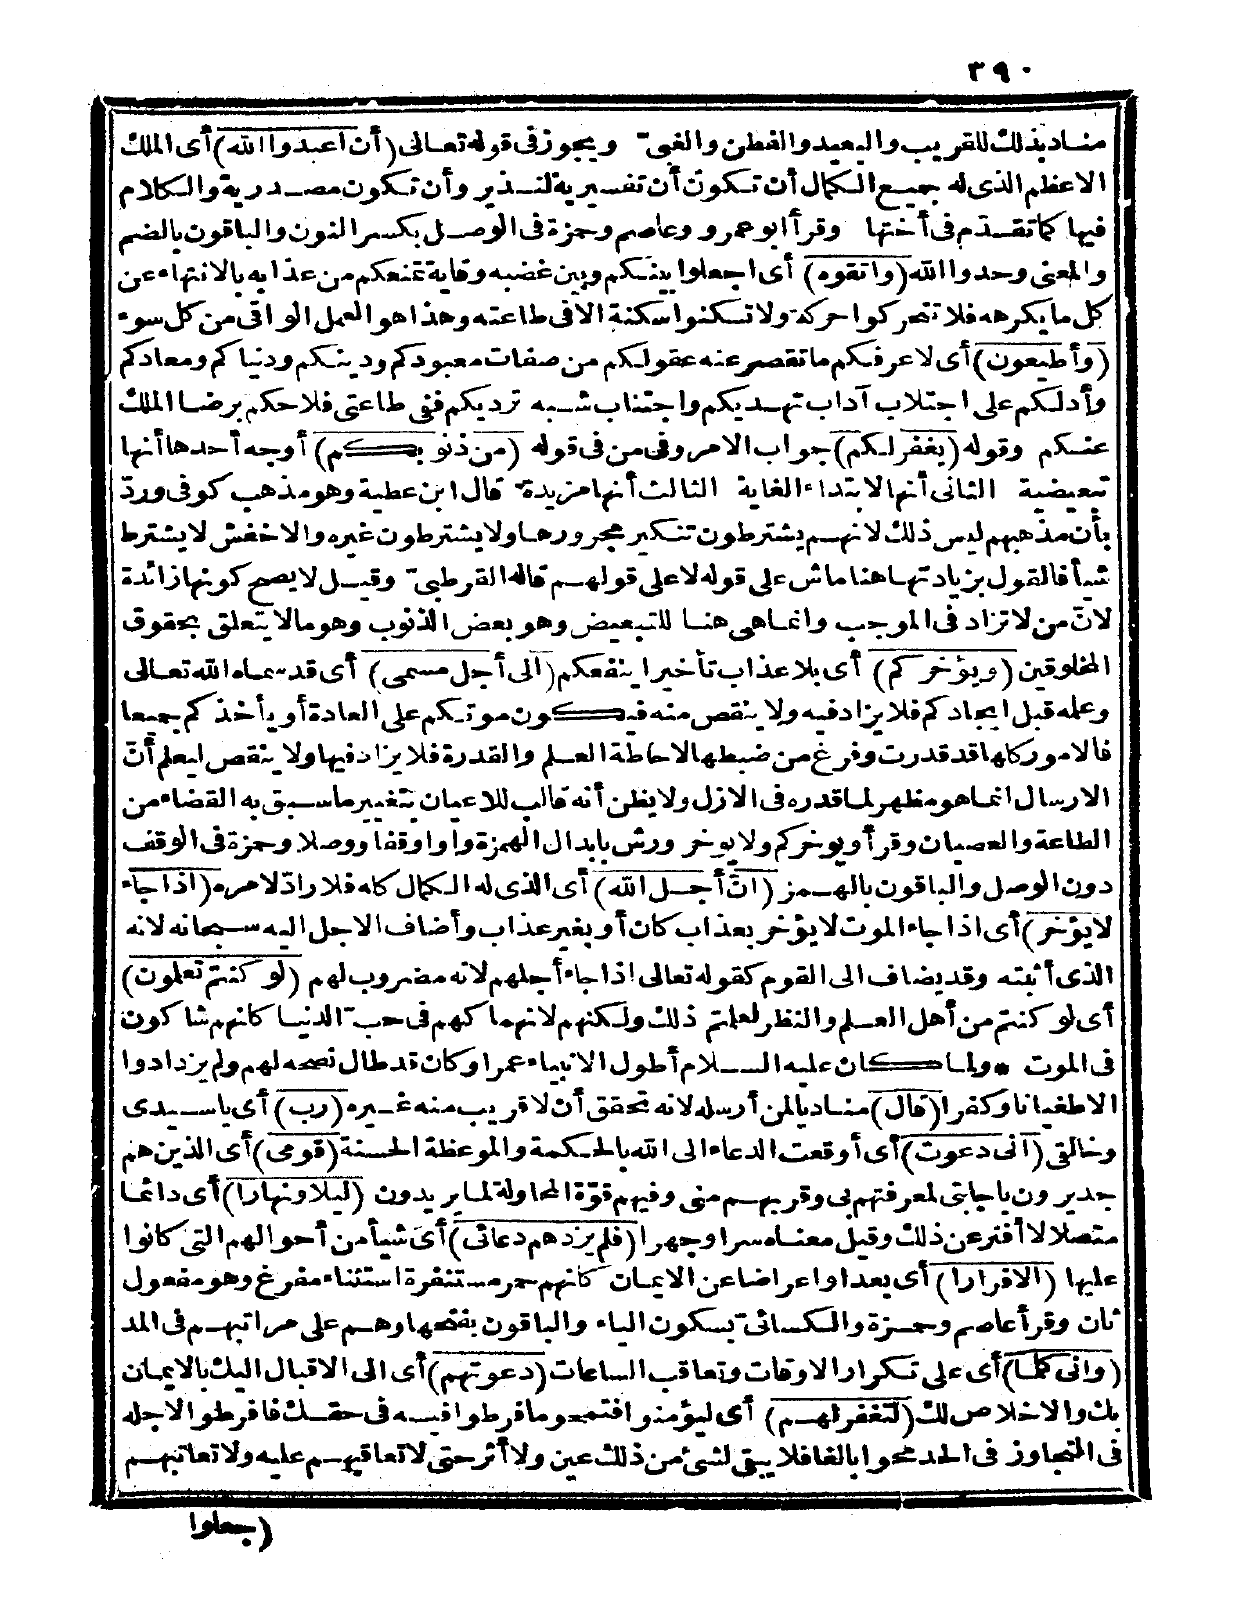 ٣٩٠
مناد بذلك للقريب والبعيد والفطن والغبىّ ويجوز فى قوله تعالى (أن اعبدوا الله) أى الملك
الاعظم الذى له جميع الكمال أن تكون أن تفسيرية لنذير وأن تكون مصدرية والكلام
فيها كما تقدّم فى أختها وقرأ ابو عمرو وعاصم وحمزة فى الوصل بكسر النون والباقون بالضم
والمعنى وحدوا الله (واتقوه) أى اجعلوا بينكم وبين غضبه وقاية تمنعكم من عذابه بالانتهاء عن
كل ما يكرهه فلا تتحركوا حركة ولا تسكنوا سكنة الا فى طاعته وهذا هو العمل الواقى من كل سوء
(وأطيعون) أى لاعرفكم ما تقصر عنه عقولكم من صفات معبودكم ودينكم ودنياكم ومعادكم
وأدلكم على اجتلاب آداب تهديكم واجتناب شبه ترديكم ففى طاعتى فلاحكم برضا الملك
عنكم وقوله (يغفر لكم) جواب الامر وفى من فى قوله (من ذنوبكم) أوجه أحدها أنها
تبعيضية الثانى أنها لابتداء الغاية الثالث أنها مزيدة قال ابن عطية وهو مذهب كوفى وردّ
بأن مذهبهم ليس ذلك لانهم يشترطون تنكير مجرورها ولا يشترطون غيره والاخفش لا يشترط
شيأ فالقول بزيادتها هنا ماش على قوله لا على قولهم قاله القرطبىّ وقيل لا يصح كونها زائدة
لانّ من لا تزاد فى الموجب وانما هى هنا للتبعيض وهو بعض الذنوب وهو ما لا يتعلق بحقوق
المخلوقين (ويؤخركم) أى بلا عذاب تأخيرا ينفعكم (الى أجل مسمى) أى قد سماه الله تعالى
وعلمه قبل ايجادكم فلا يزاد فيه ولا ينقص منه فيكون موتكم على العادة أو يأخذكم جميعا
فالامور كلها قد قدرت وفرغ من ضبطها لاحاطة العلم والقدرة فلا يزاد فيها ولا ينقص ليعلم أنّ
الارسال انما هو مظهر لما قدره فى الازل ولا يظن أنه قالب للاعيان بتغيير ما سبق به القضاء من
الطاعة والعصيان وقرأ ويوخركم ولا يوخر ورش بابدال الهمزة واوا وقفا ووصلا وحمزة فى الوقف
دون الوصل والباقون بالهمز (انّ أجل الله) أى الذى له الكمال كله فلا رادّ لامره (اذا جاء
لا يؤخر) أى اذا جاء الموت لا يؤخر بعذاب كان أو بغير عذاب وأضاف الاجل اليه سبحانه لانه
الذى أثبته وقد يضاف الى القوم كقوله تعالى اذا جاء أجلهم لانه مضروب لهم (لو كنتم تعلمون)
أى لو كنتم من أهل العلم والنظر لعلمتم ذلك ولكنهم لانهما كهم فى حب الدنيا كانهم شاكون
فى الموت * ولما كان عليه السلام أطول الانبياء عمرا وكان قد طال نصحه لهم ولم يزدادوا
الا طغيانا وكفرا (قال) مناديا لمن أرسله لانه تحقق أن لا قريب منه غيره (رب) أى يا سيدى
وخالقى (انى دعوت) أى أوقعت الدعاء الى الله بالحكمة والموعظة الحسنة (قومى) أى الذين هم
جديرون باجابتى لمعرفتهم بى وقربهم منى وفيهم قوّة المحاولة لما يريدون (ليلا ونهارا) أى دائما
متصلا لا أفتر عن ذلك وقيل معناه سرا وجهرا (فلم يزدهم دعائى) أى شيأ من أحوالهم التى كانوا
عليها (الا فرارا) أى بعدا واعراضا عن الايمان كأنهم حمر مستنفرة استثناء مفرغ وهو مفعول
ثان وقرأ عاصم وحمزة والكسائىّ بسكون الياء والباقون بفتحها وهم على مراتبهم فى المد
(وانى كلما) أى على تكرار الاوقات وتعاقب الساعات (دعوتهم) أى الى الاقبال اليك بالايمان
بك والاخلاص لك (لتغفر لهم) أى ليؤمنوا فتمحو ما فرطوا فيه فى حقك فافرطوا لاجله
فى التجاوز فى الحد محوا بالغا فلا يبقى لشئ من ذلك عين ولا أثر حتى لا تعاقبهم عليه ولا تعاتبهم
(جعلوا